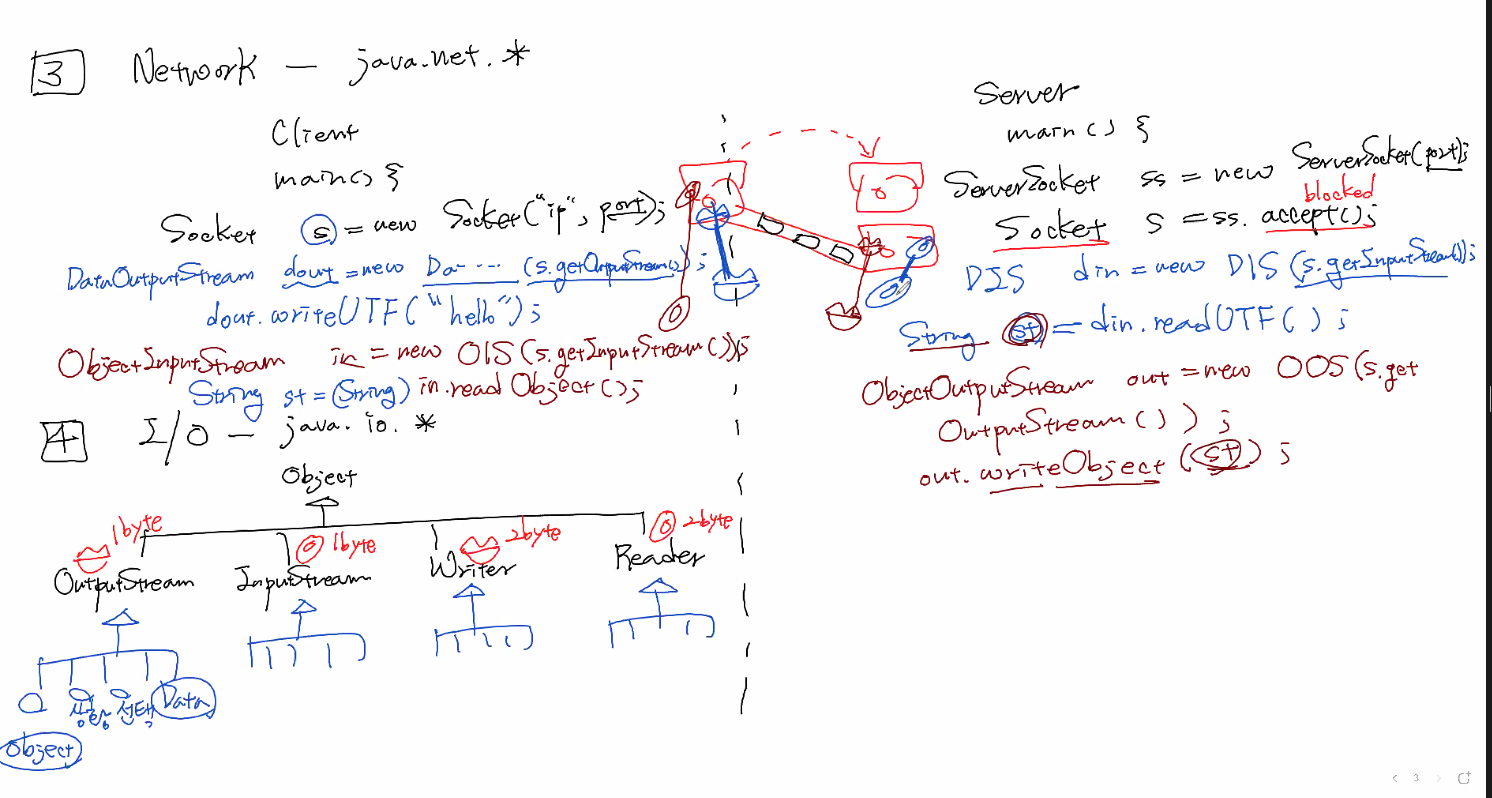 3 Network - java.net.*
Client
main() {
Socket s = new Socket("ip", port);
DataOutputStream dout = new Da.... (s.getOutputStream());
dout.writeUTF("hello");
ObjectInputStream in = new OIS(s.getInputStream());
String st = (String) in.readObject();
Server
main() {
ServerSocket ss = new ServerSocket(port);
blocked
Socket s = ss.accept();
DIS din = new DIS(s.getInputStream());
String st = din.readUTF();
ObjectOutputStream out = new OOS(s.get
OutputStream());
out.writeObject(st);
4 I/O - java.io.*
Object
1byte 1byte 2byte 2byte
OutputStream InputStream Writer Reader
Data
Object
3